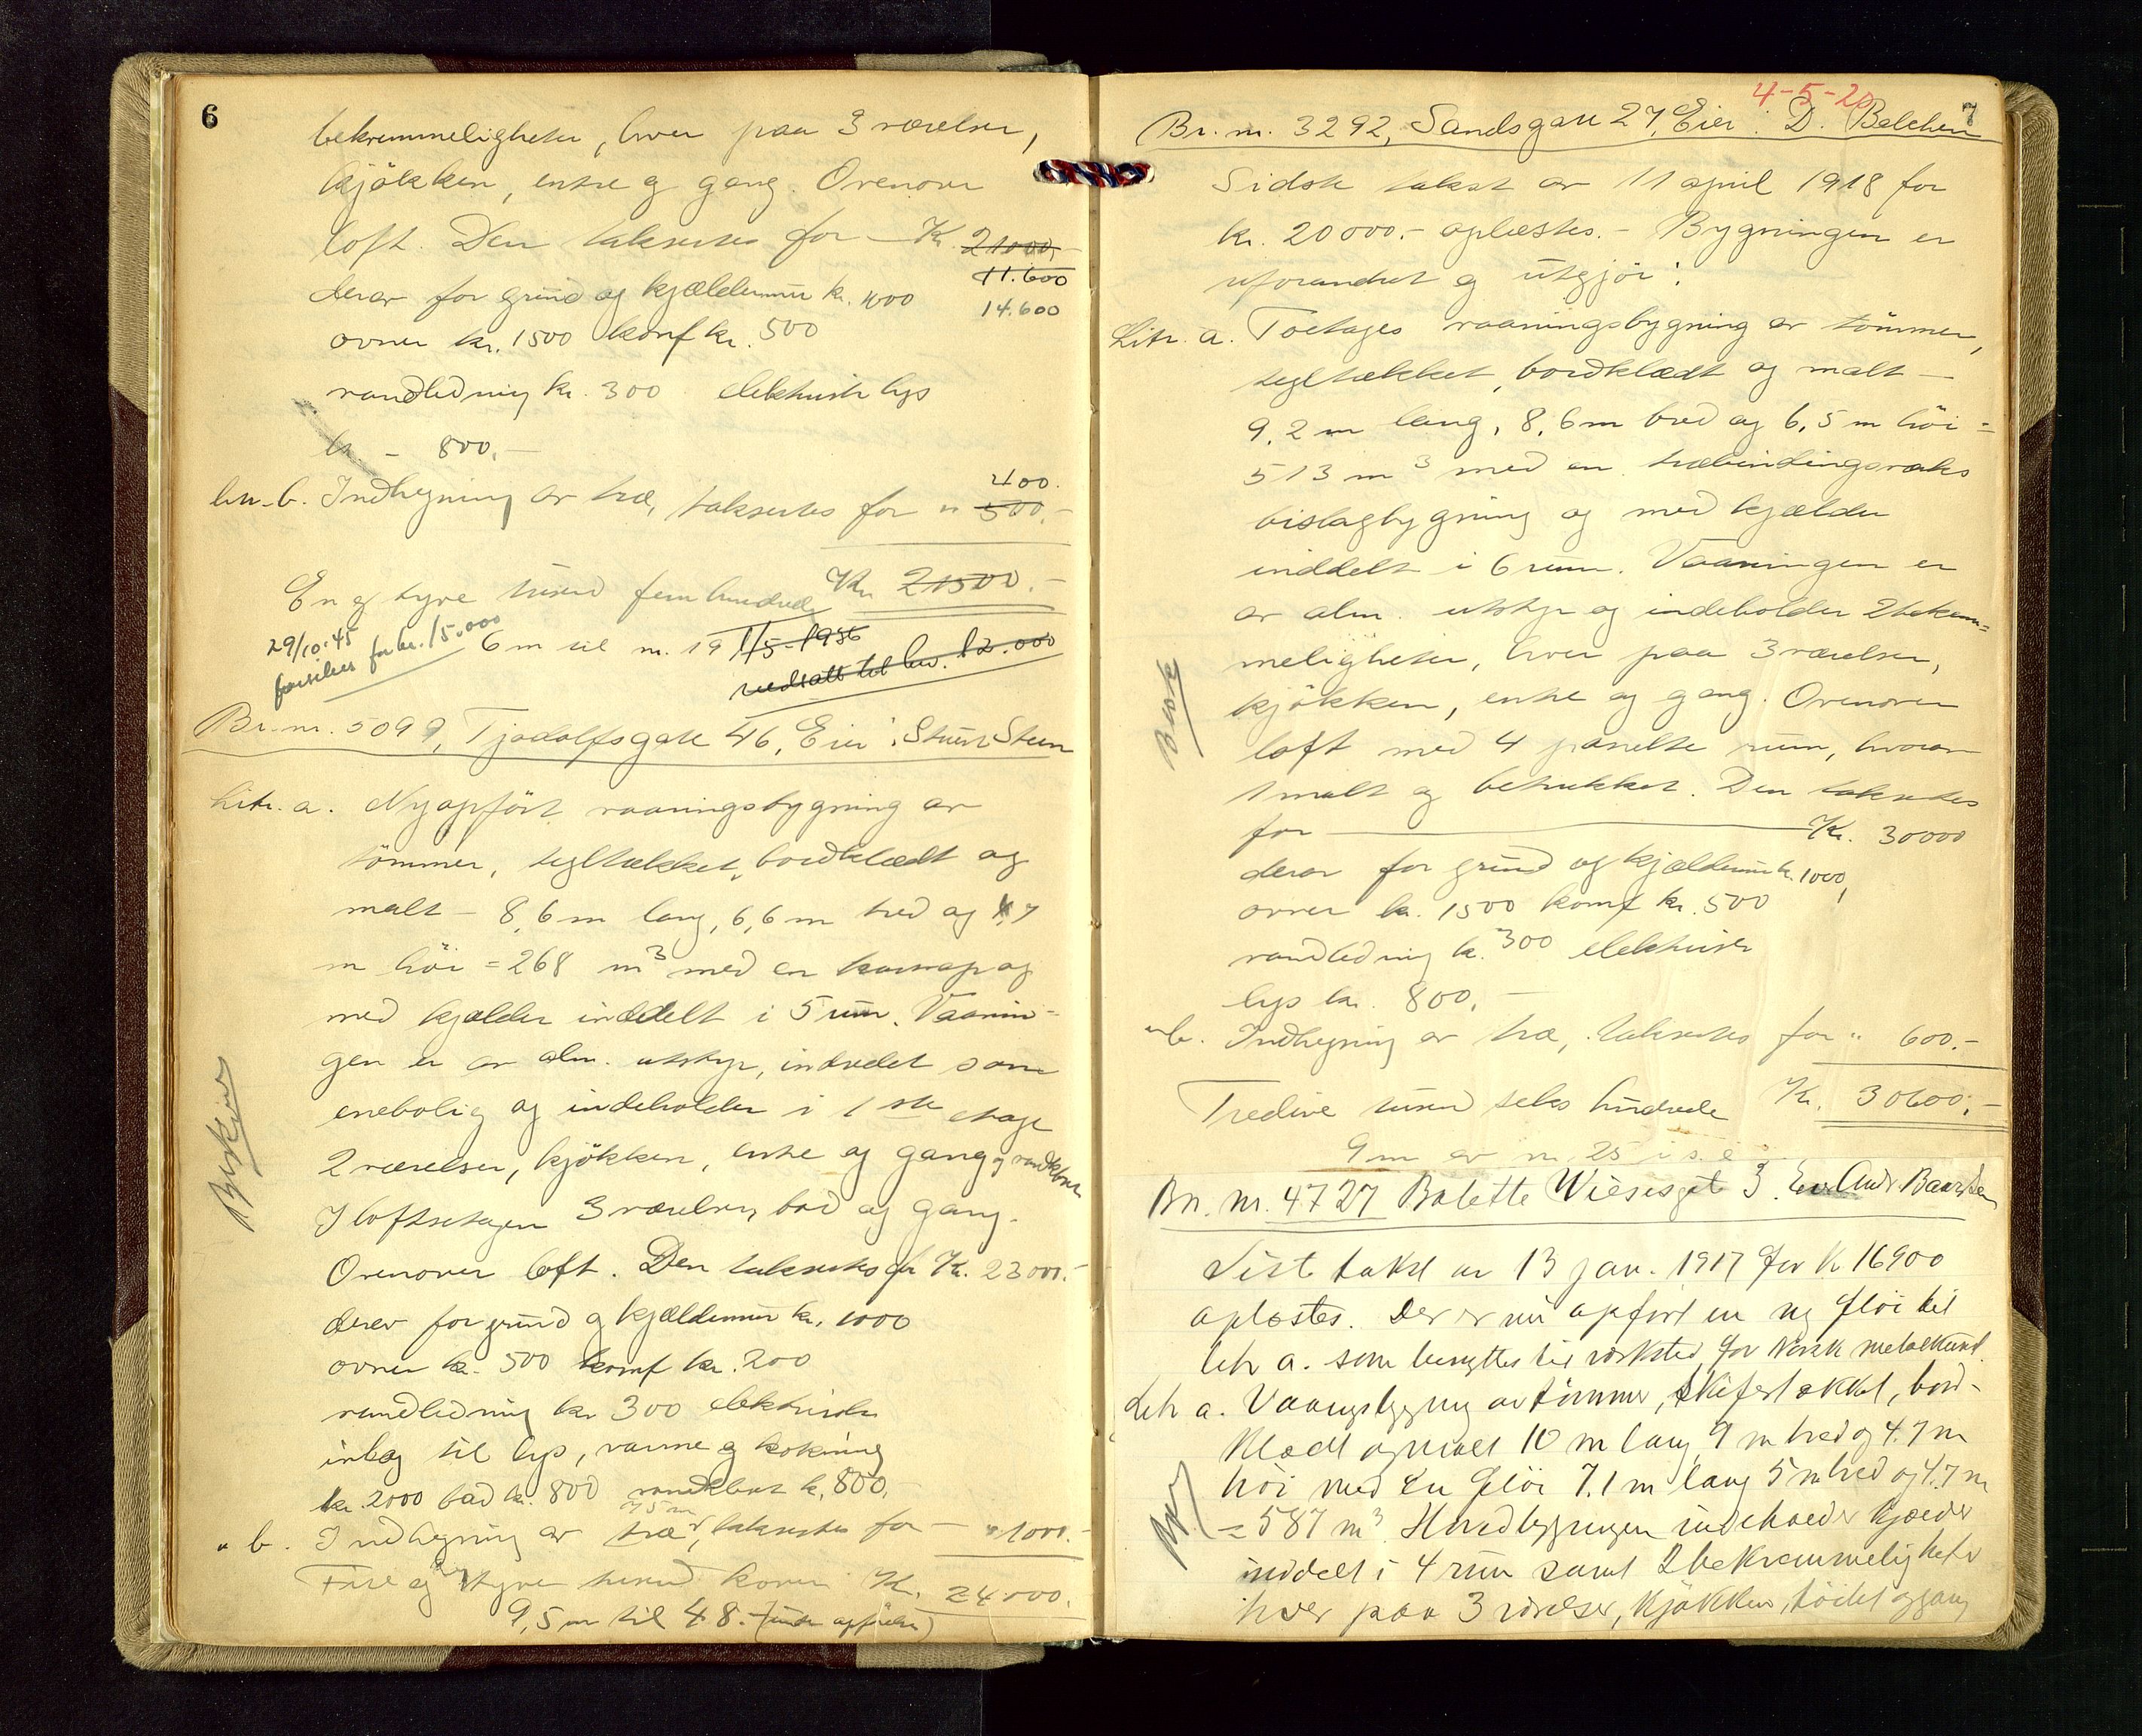 6
bekvemmeligheter, hver paa 3 værelser,
kjøkken, entre og gang. Ovenover
loft. Den takseres for — Kr. 21000,-
11.600
derav for grund og kjældermur kr. 1000
14.600
ovner kr. 1500 komf kr. 500
vandledning kr. 300 elektrisk lys
kr. - 800.-
400.
litr. b. Indhegning av træ, takseres for " 500.-
En og tyve tusend fem hundrede Kr. 21500.-
29/10-45
forsikres for kr. 15.000
6 m til nr. 19
1/5-1936
nedsatt til kr. 12.000
Br. nr. 5099, Tjodolfsgate 46, Eier: Sturi Steen
Litr. a. Nyopført vaaningsbygning av
tømmer, tegltækket, bordklædt og
malt – 8,6 m lang, 6,6 m bred og 4,7
m høi = 268 m³ med en karnap og
med kjælder inddelt i 5 rum. Vaanin-
gen er av alm. utstyr, indredet som
enebolig og indeholder i 1ste etage
2 værelser, kjøkken, entre og gang og vandklosett
I loftsetagen 3 værelser, bad og gang.
Ovenover loft. Den takseres for Kr. 23000.-
derav for grund og kjældermur kr. 1000
ovner kr. 500 komf kr. 200
vandledning kr 300 elektrisk
inlæg til lys, varme og kokning
kr. 2000 bad kr. 800 vandklosett kr. 800.
75 m
" b. Indhegning av træ, takseres for — " 1000.-
Fire og tyve tusend kroner Kr. 24000.
9,5 m til 48. (under opførelse)
4-5-20
7
Br. nr. 3292, Sandsgate 27, Eier: D. Belchen
Sidste takst av 11 april 1918 for
kr. 20000.- oplæstes. – Bygningen er
uforandret og utgjør:
Litr. a. Toetages vaaningsbygning av tømmer,
tegltækket, bordklædt og malt –
9,2 m lang, 8,6 m bred og 6,5 m høi =
513 m³ med en træbindingsverks
bislagbygning og med kjælder
inddelt i 6 rum. Vaaningen er
av alm. utstyr og indeholder 2 bekvem=
meligheter, hver paa 3 værelser,
kjøkken, entre og gang. Ovenover
loft med 4 panelte rum, hvorav
1 malt og betrukket. Den takseres
for — Kr. 30000
derav for grund og kjældermur kr. 1000,
ovner kr. 1500 komf kr. 500
vandledning kr. 300 elektrisk
lys kr. 800.-
" b. Indhegning av træ, takseres for " 600.-
Tredive tusend seks hundrede Kr. 30600.-
9 m av nr. 25 i s. e.
Br. nr. 4727 Bolette Wiesesgt 3. Eier Andr. Baarsen
Siste takst av 13 jan. 1917 for kr 16900
oplæstes. Der er nu opført en ny fløi til
litr a. som benyttes til verksted for Norsk metalkunst.
Litr a. Vaaningsbygning av tømmer, skifertækket, bord-
klædt og malt 10 m lang 9 m bred og 4.7 m
høi med en fløi 7.1 m lang 5 m bred og 4.7 m
= 587 m³ Hovedbygningen indeholder kjælder
inddelt i 4 rum samt 2 bekvemmeligheter
hver paa 3 værelser, kjøkken, toilet og gang